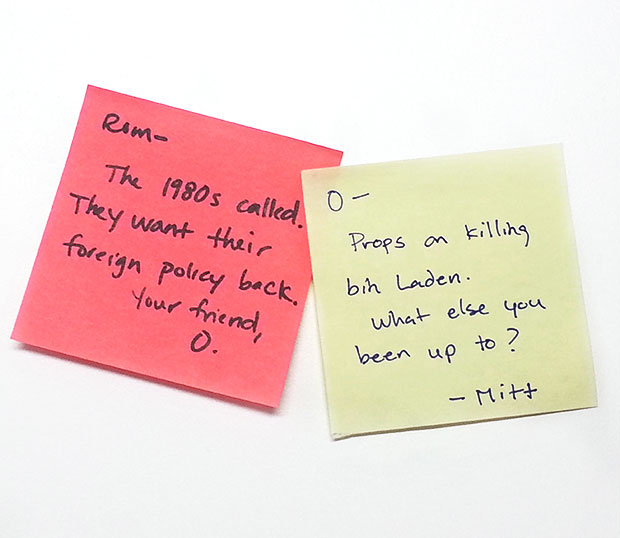 Rom-
The 1980s called.
They want their
foreign policy back.
Your friend,
O.
O -
Props on killing
bin Laden.
What else you
been up to?
- Mitt